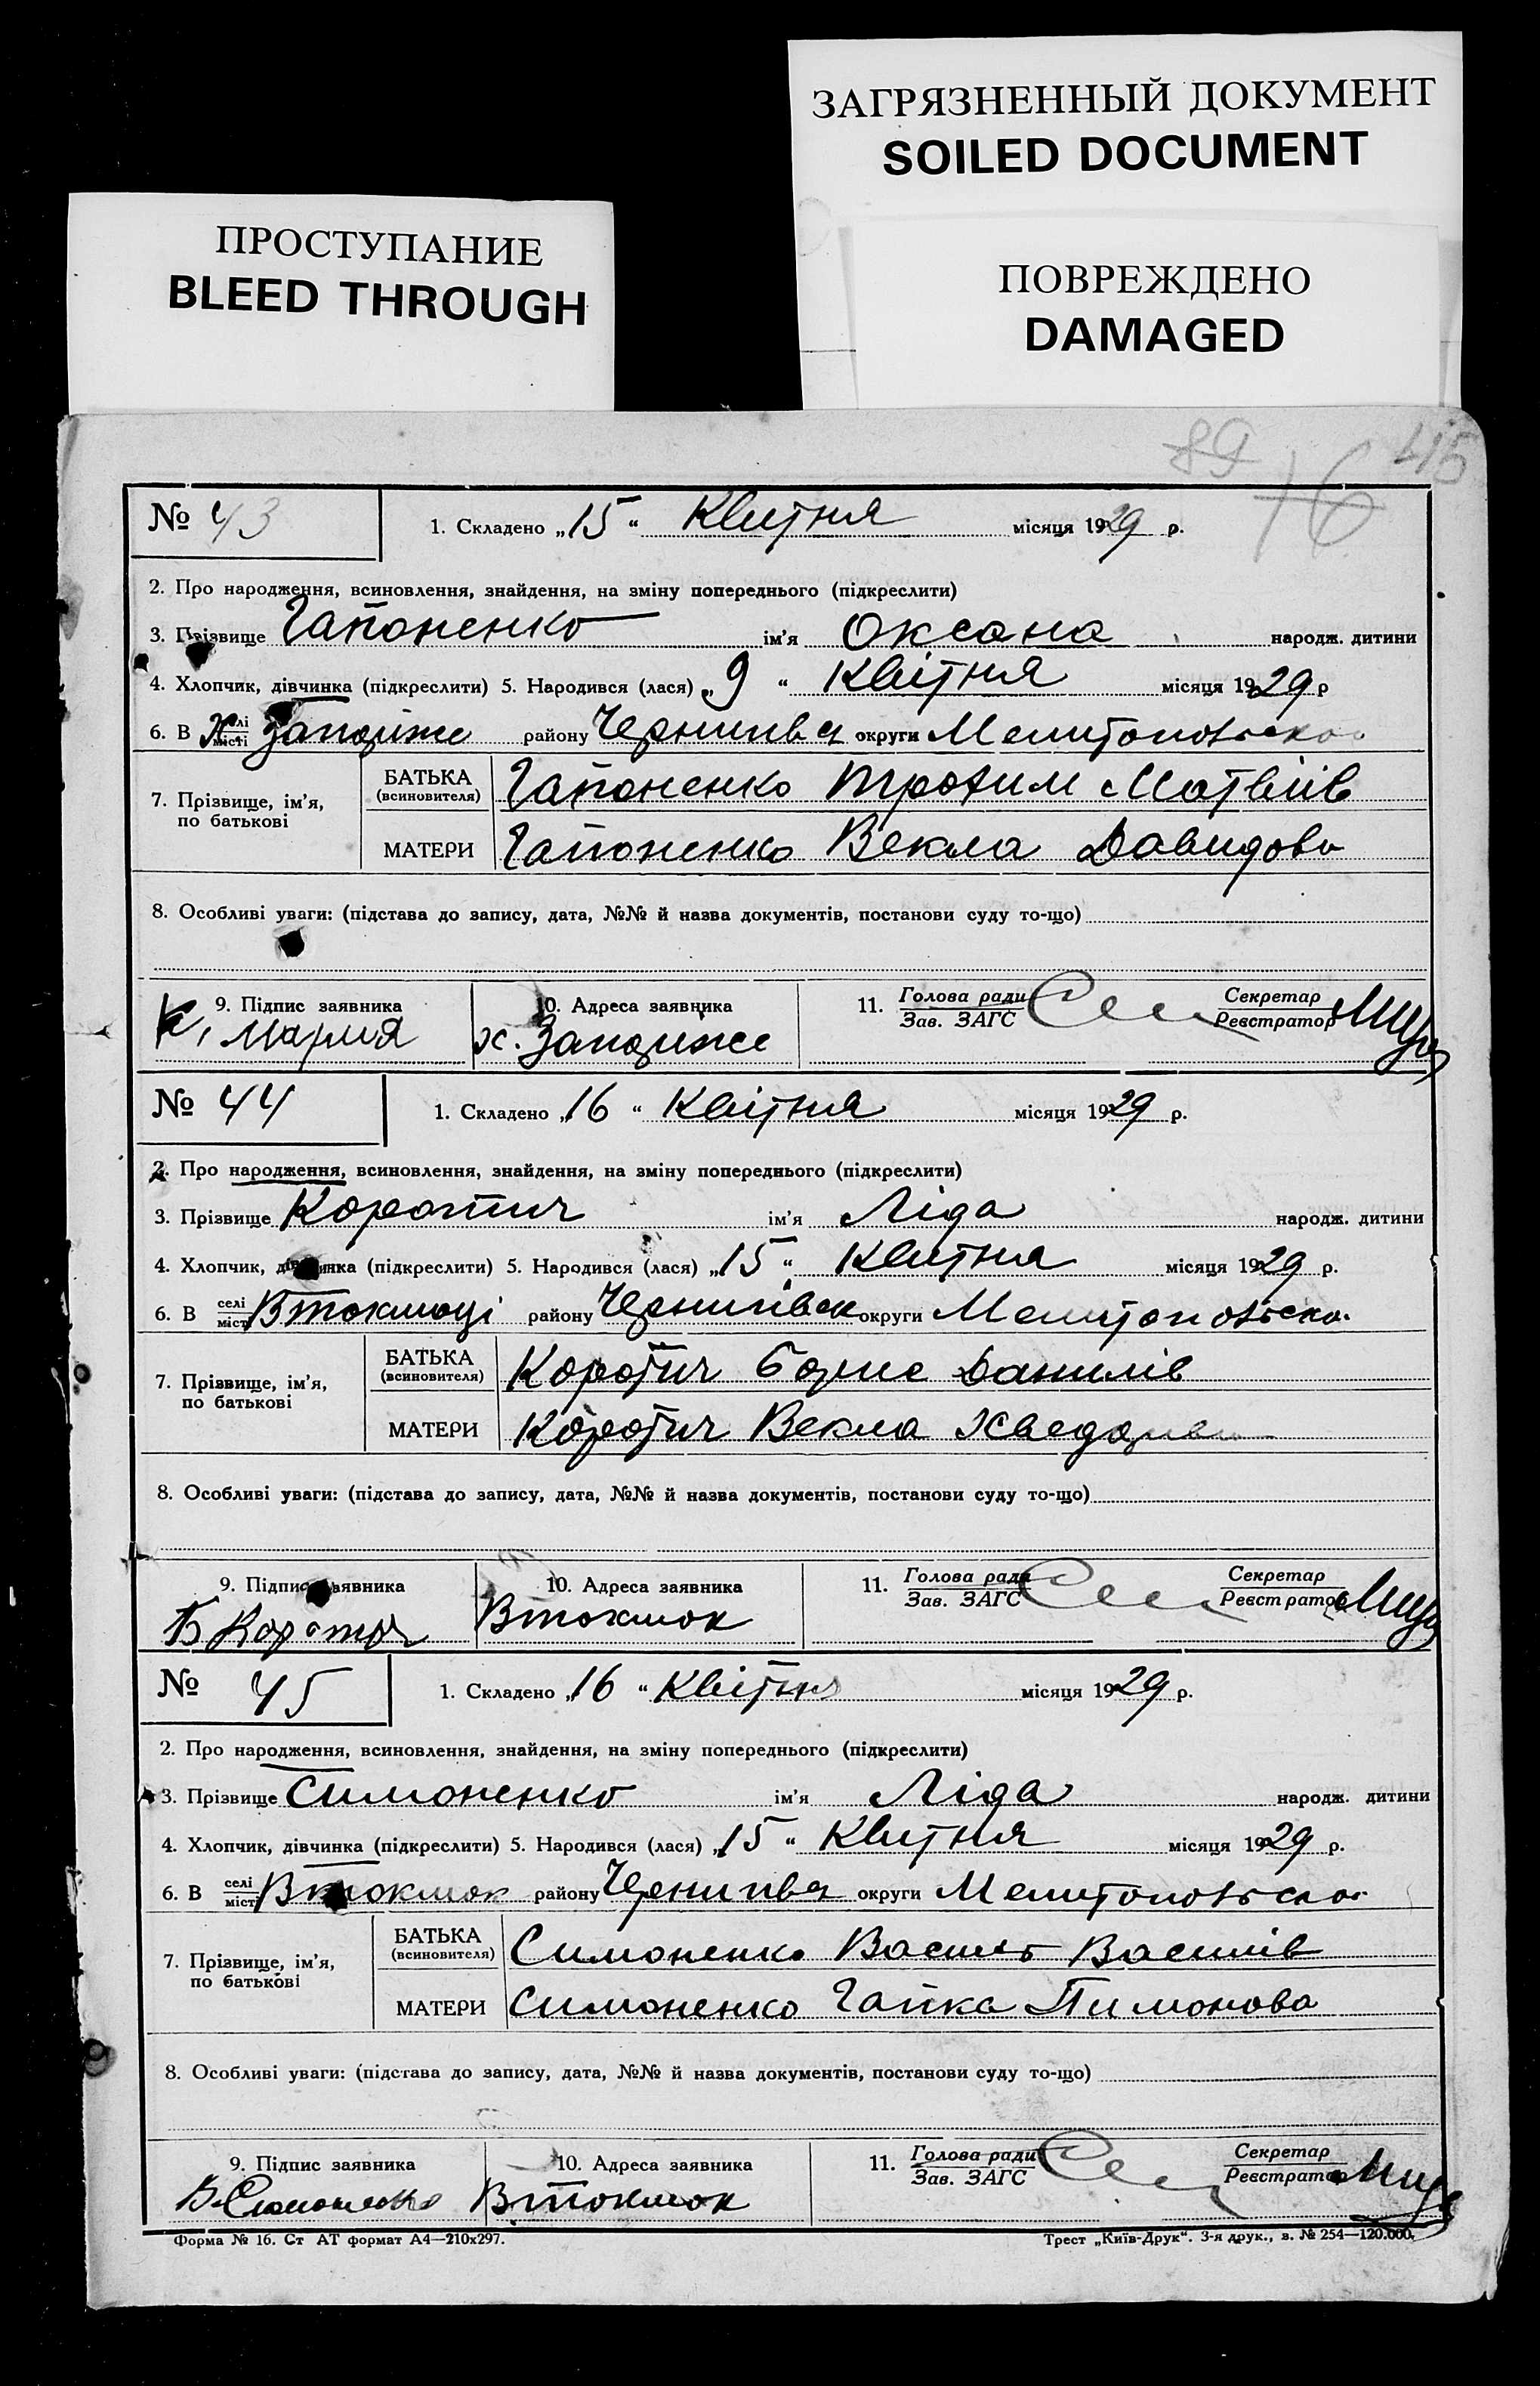 ЗАГРЯЗНЕННЫЙ ДОКУМЕНТ
SOILED DOCUMENT
ПРОСТУПАНИЕ
BLEED THROUGH
ПОВРЕЖДЕНО
DAMAGED
89 45
16
№ 43 1. Складено „15“ Квитня місяця 1929 р.
2. Про народження, всиновлення, знайдення, на зміну попереднього (підкреслити)
3. Прізвище Гапоненко ім'я Оксана народж. дитини
4. Хлопчик, дівчинка (підкреслити) 5. Народився (лася) „9“ Квітня місяця 1929 р
6. В х. Запоріже району Чернигівськ округи Мелитопольсько
7. Прізвище, ім'я, по батькові
БАТЬКА (всиновителя) Гапоненко Трофим Матвіїв
МАТЕРИ Гапоненко Векла Давидова
8. Особливі уваги: (підстава до запису, дата, №№ й назва документів, постанови суду то-що)
9. Підпис заявника 10. Адреса заявника 11. Голова ради Зав. ЗАГС Секретар Реєстратор
К, Мария х. Запориже
№ 44 1. Складено „16“ Квітня місяця 1929 р.
2. Про народження, всиновлення, знайдення, на зміну попереднього (підкреслити)
3. Прізвище Коротич ім'я Ліда народж. дитини
4. Хлопчик, дівчинка (підкреслити) 5. Народився (лася) „15“ Квитня місяця 1929 р.
6. В селі місті Втокмаці району Чернигівськ округи Мелитопольсько
7. Прізвище, ім'я, по батькові
БАТЬКА (всиновителя) Коротич Борис Данилів
МАТЕРИ Коротич Векла Хведорівна
8. Особливі уваги: (підстава до запису, дата, №№ й назва документів, постанови суду то-що)
9. Підпис заявника 10. Адреса заявника 11. Голова ради Зав. ЗАГС Секретар Реєстратор
Б Коротич Втокмак
№ 45 1. Складено „16“ Квітня місяця 1929 р.
2. Про народження, всиновлення, знайдення, на зміну попереднього (підкреслити)
3. Прізвище Симоненко ім'я Ліда народж. дитини
4. Хлопчик, дівчинка (підкреслити) 5. Народився (лася) „15“ Квитня місяця 1929 р.
6. В селі місті Втокмак району Чернигівськ округи Мелитопольсько
7. Прізвище, ім'я, по батькові
БАТЬКА (всиновителя) Симоненко Василь Василів
МАТЕРИ Симоненко Гапка Пимонова
8. Особливі уваги: (підстава до запису, дата, №№ й назва документів, постанови суду то-що)
9. Підпис заявника 10. Адреса заявника 11. Голова ради Зав. ЗАГС Секретар Реєстратор
В. Симоненко Втокмак
Форма № 16. Ст АТ формат А4—210х297. Трест „Київ-Друк“. 3-я друк., з. № 254—120.000.